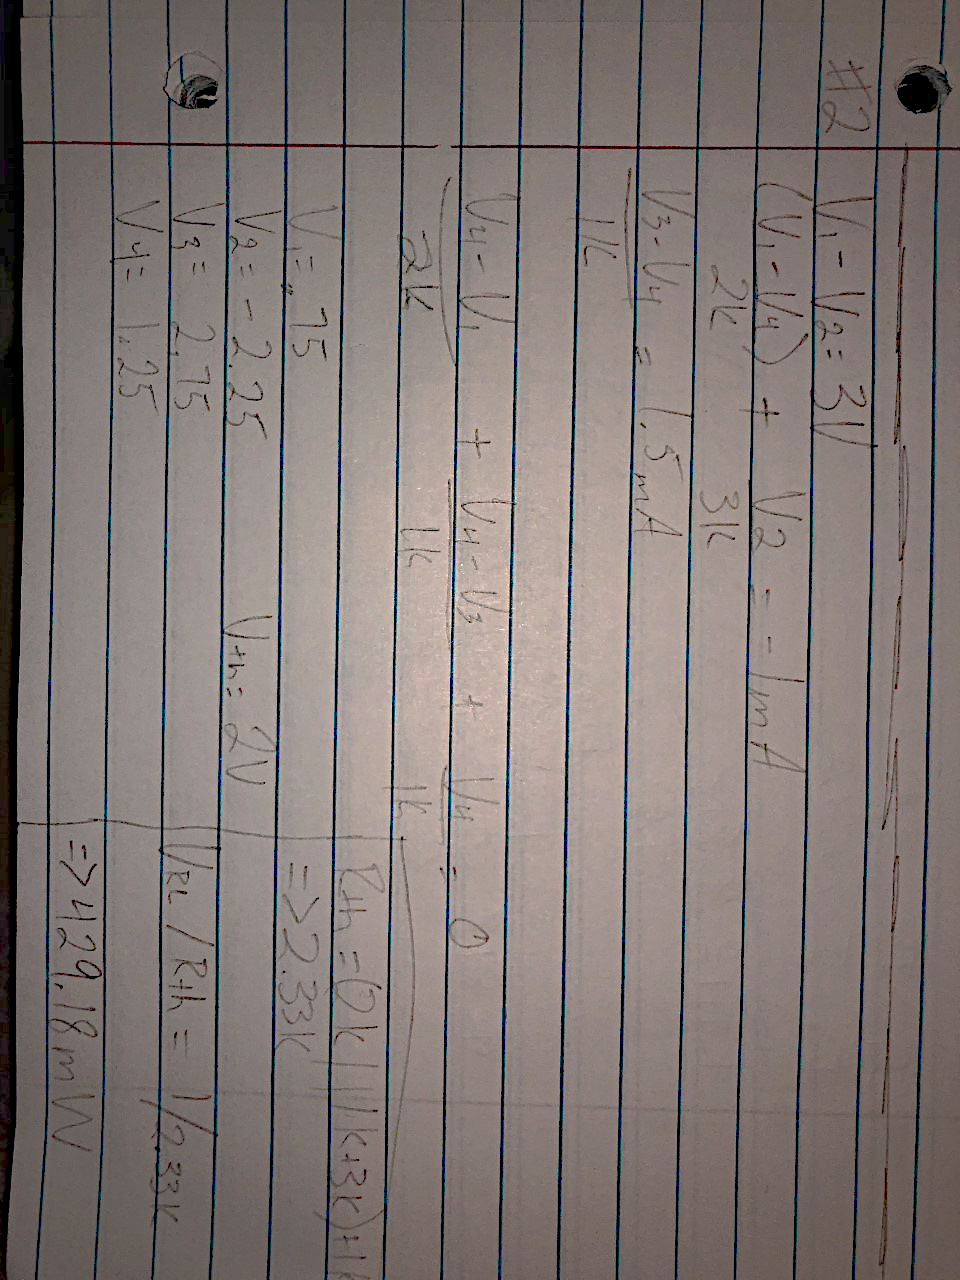 #2 V1 - V2 = 3V
(V1 - V4)/2k + V2/3k = -1mA
V3 - V4/1k = 1.5mA
V4 - V1/2k + V4 - V3/1k + V4/1k = 0
V1 = .75
V2 = -2.25
V3 = 2.75
V4 = 1.25
Vth = 2V
Rth = (2k || 1k+3k)+1k
=> 2.33k
VRL / Rth = 1/2.33k
=> 429.18mW